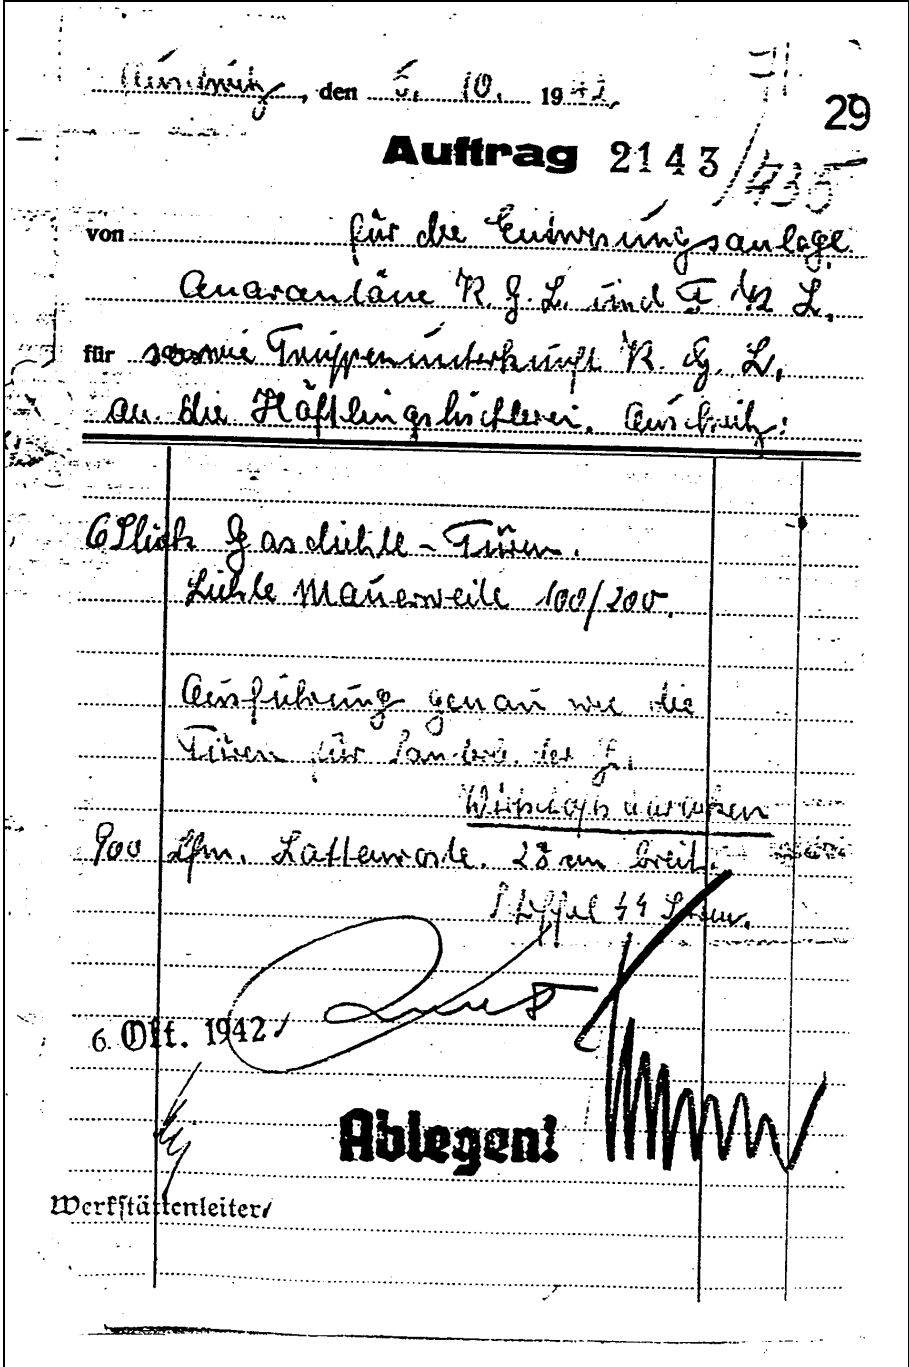 Auschwitz, den 6. 10. 1942
29
Auftrag 2143/435
von für die Entwesungsanlage
Quarantäne K. G. L. und F. K. L.
für sowie Truppenunterkunft K. G. L.
an die Häftlingstischlerei. Auschwitz:
6 Stück Gasdichte-Türen.
Lichte Mauerweite 100/200.
Ausführung genau wie die
Türen für der
900 Lfm. Lattenroste. 28 cm breit.
6. Okt. 1942
Ablegen!
Werkstättenleiter